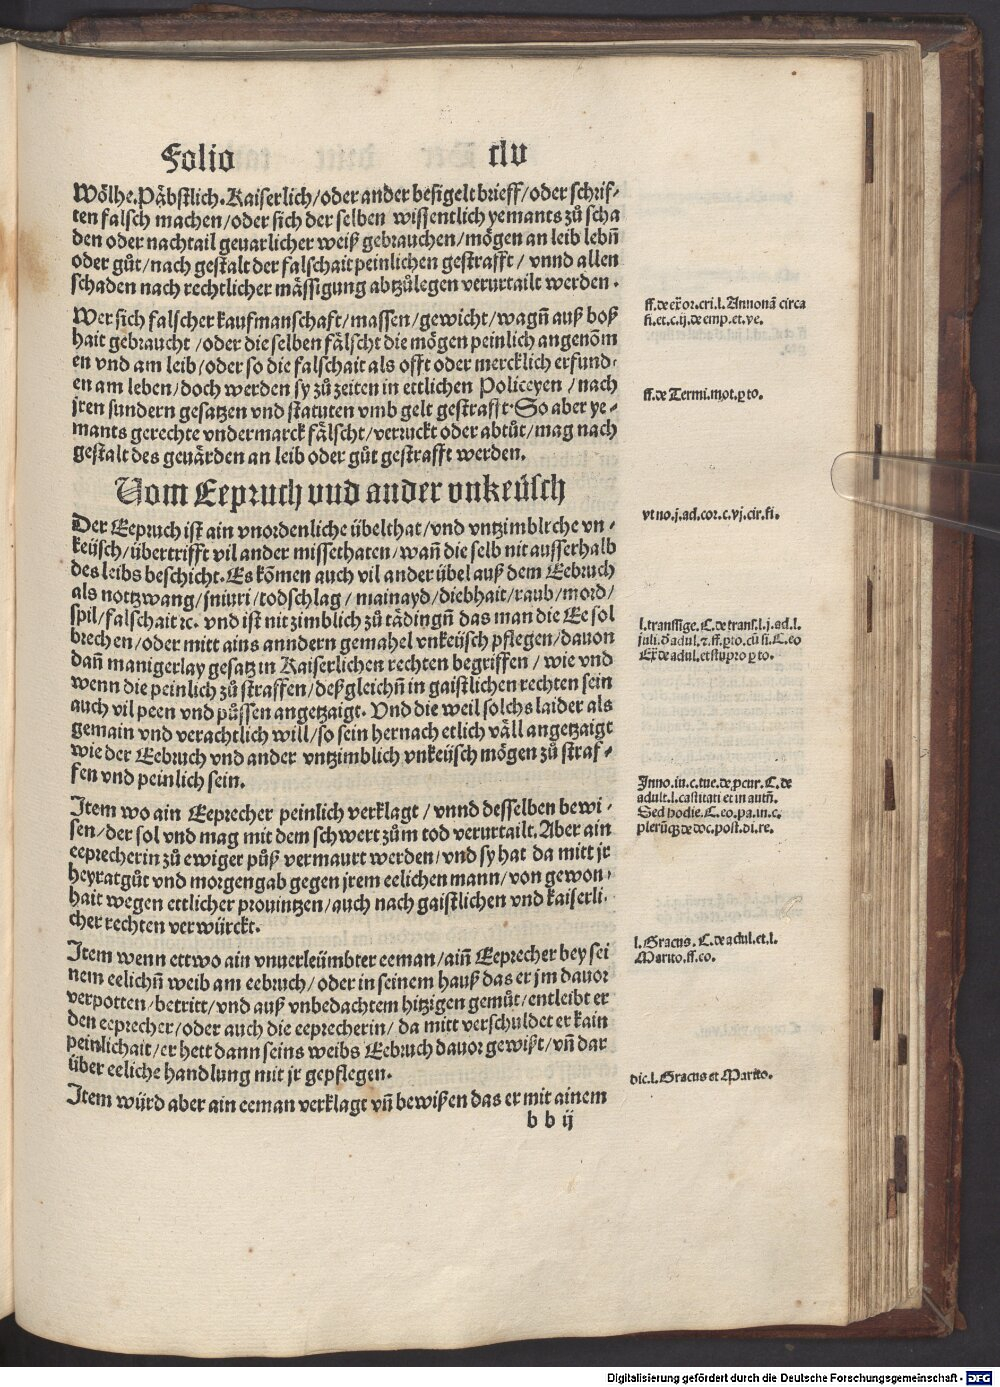 Folio clv
Wölhe. Päbstlich. Kaiserlich/oder ander besigelt brieff/oder schrif-
ten falsch machen/oder sich der selben wissentlich yemants zů scha
den oder nachtail geuarlicher weiß gebrauchen/mögen an leib lebñ
oder gůt/nach gestalt der falschait peinlichen gestrafft/ vnnd allen
schaden nach rechtlicher mässigung abtzůlegen verurtailt werden.
Wer sich falscher kaufmanschaft/massen/gewicht/wagñ auß boß
hait gebraucht/oder die selben fälscht die mögen peinlich angenõm
en vnd am leib/oder so die falschait als offt oder mercklich erfund-
en am leben/doch werden sy zů zeiten in ettlichen Policeyen/nach
jren sundern gesatzen vnd statuten vmb gelt gestrafft. So aber ye-
mants gerechte vndermarck fälscht/verruckt oder abtůt/mag nach
gestalt des geuärden an leib oder gůt gestrafft werden.
ff. de exͤor. cri. l. Annonã circa
fi. et. c. ij. de emp. et. ve.
ff. de Termi. mot. ꝑ to.
Vom Eepruch vnd ander vnkeüsch
Der Eepruch ist ain vnordenliche übelthat/vnd vntzimbliche vn-
keüsch/übertrifft vil ander missethaten/wañ die selb nit ausserhalb
des leibs beschicht. Es kõmen auch vil ander übel auß dem Eebruch
als nottzwang/jniuri/todschlag/mainayd/diebhait/raub/mord/
spil/falschait ꝛc. vnd ist nit zimblich zů tädingñ das man die Ee sol
brechen/oder mitt ains anndern gemahel vnkeüsch pflegen/dauon
dañ manigerlay gesatz in Kaiserlichen rechten begriffen/wie vnd
wenn die peinlich zů straffen/deßgleichñ in gaistlichen rechten sein
auch vil peen vnd půssen angetzaigt. Vnd die weil solchs laider als
gemain vnd verachtlich will/so sein hernach etlich väll angetzaigt
wie der Eebruch vnd ander vntzimblich vnkeüsch mögen zů straf-
fen vnd peinlich sein.
vt no. j. ad. cor. c. vj. cir. fi.
l. transsige. C. de trans. l. j. ad. l.
juli. ð adul. ⁊. ff. ꝑ to. cũ si. C. eo
Ex̃ de adul. et stupro ꝑ to.
Item wo ain Eeprecher peinlich verklagt/vnnd desselben bewi-
sen/der sol vnd mag mit dem schwert zům tod verurtailt. Aber ain
eeprecherin zů ewiger půß vermaurt werden/vnd sy hat da mitt jr
heyratgůt vnd morgengab gegen jrem eelichen mann/von gewon-
hait wegen ettlicher prouintzen/auch nach gaistlichen vnd kaiserli-
cher rechten verwürckt.
Inno. in. c. tue. de ꝓcur. C. de
adult. l. castitati et in autñ.
Sed hodie. C. eo. pa. in. c.
pleruqꝫ de doc. post. di. re.
Item wenn ettwo ain vnuerleümbter eeman/ainñ Eeprecher bey sei
nem eelichñ weib am eebruch/oder in seinem hauß das er jm dauor
verpotten/betritt/vnd auß vnbedachtem hitzigen gemůt/entleibt er
den eeprecher/oder auch die eeprecherin/da mitt verschuldet er kain
peinlichait/er hett dann seins weibs Eebruch dauor gewißt/vñ dar
über eeliche handlung mit jr gepflegen.
l. Gracus. C. de adul. et. l.
Marito. ff. eo.
Item würd aber ain eeman verklagt vñ bewißen das er mit ainem
dic. l. Gracus et Marito.
b b ij
Digitalisierung gefördert durch die Deutsche Forschungsgemeinschaft - DFG